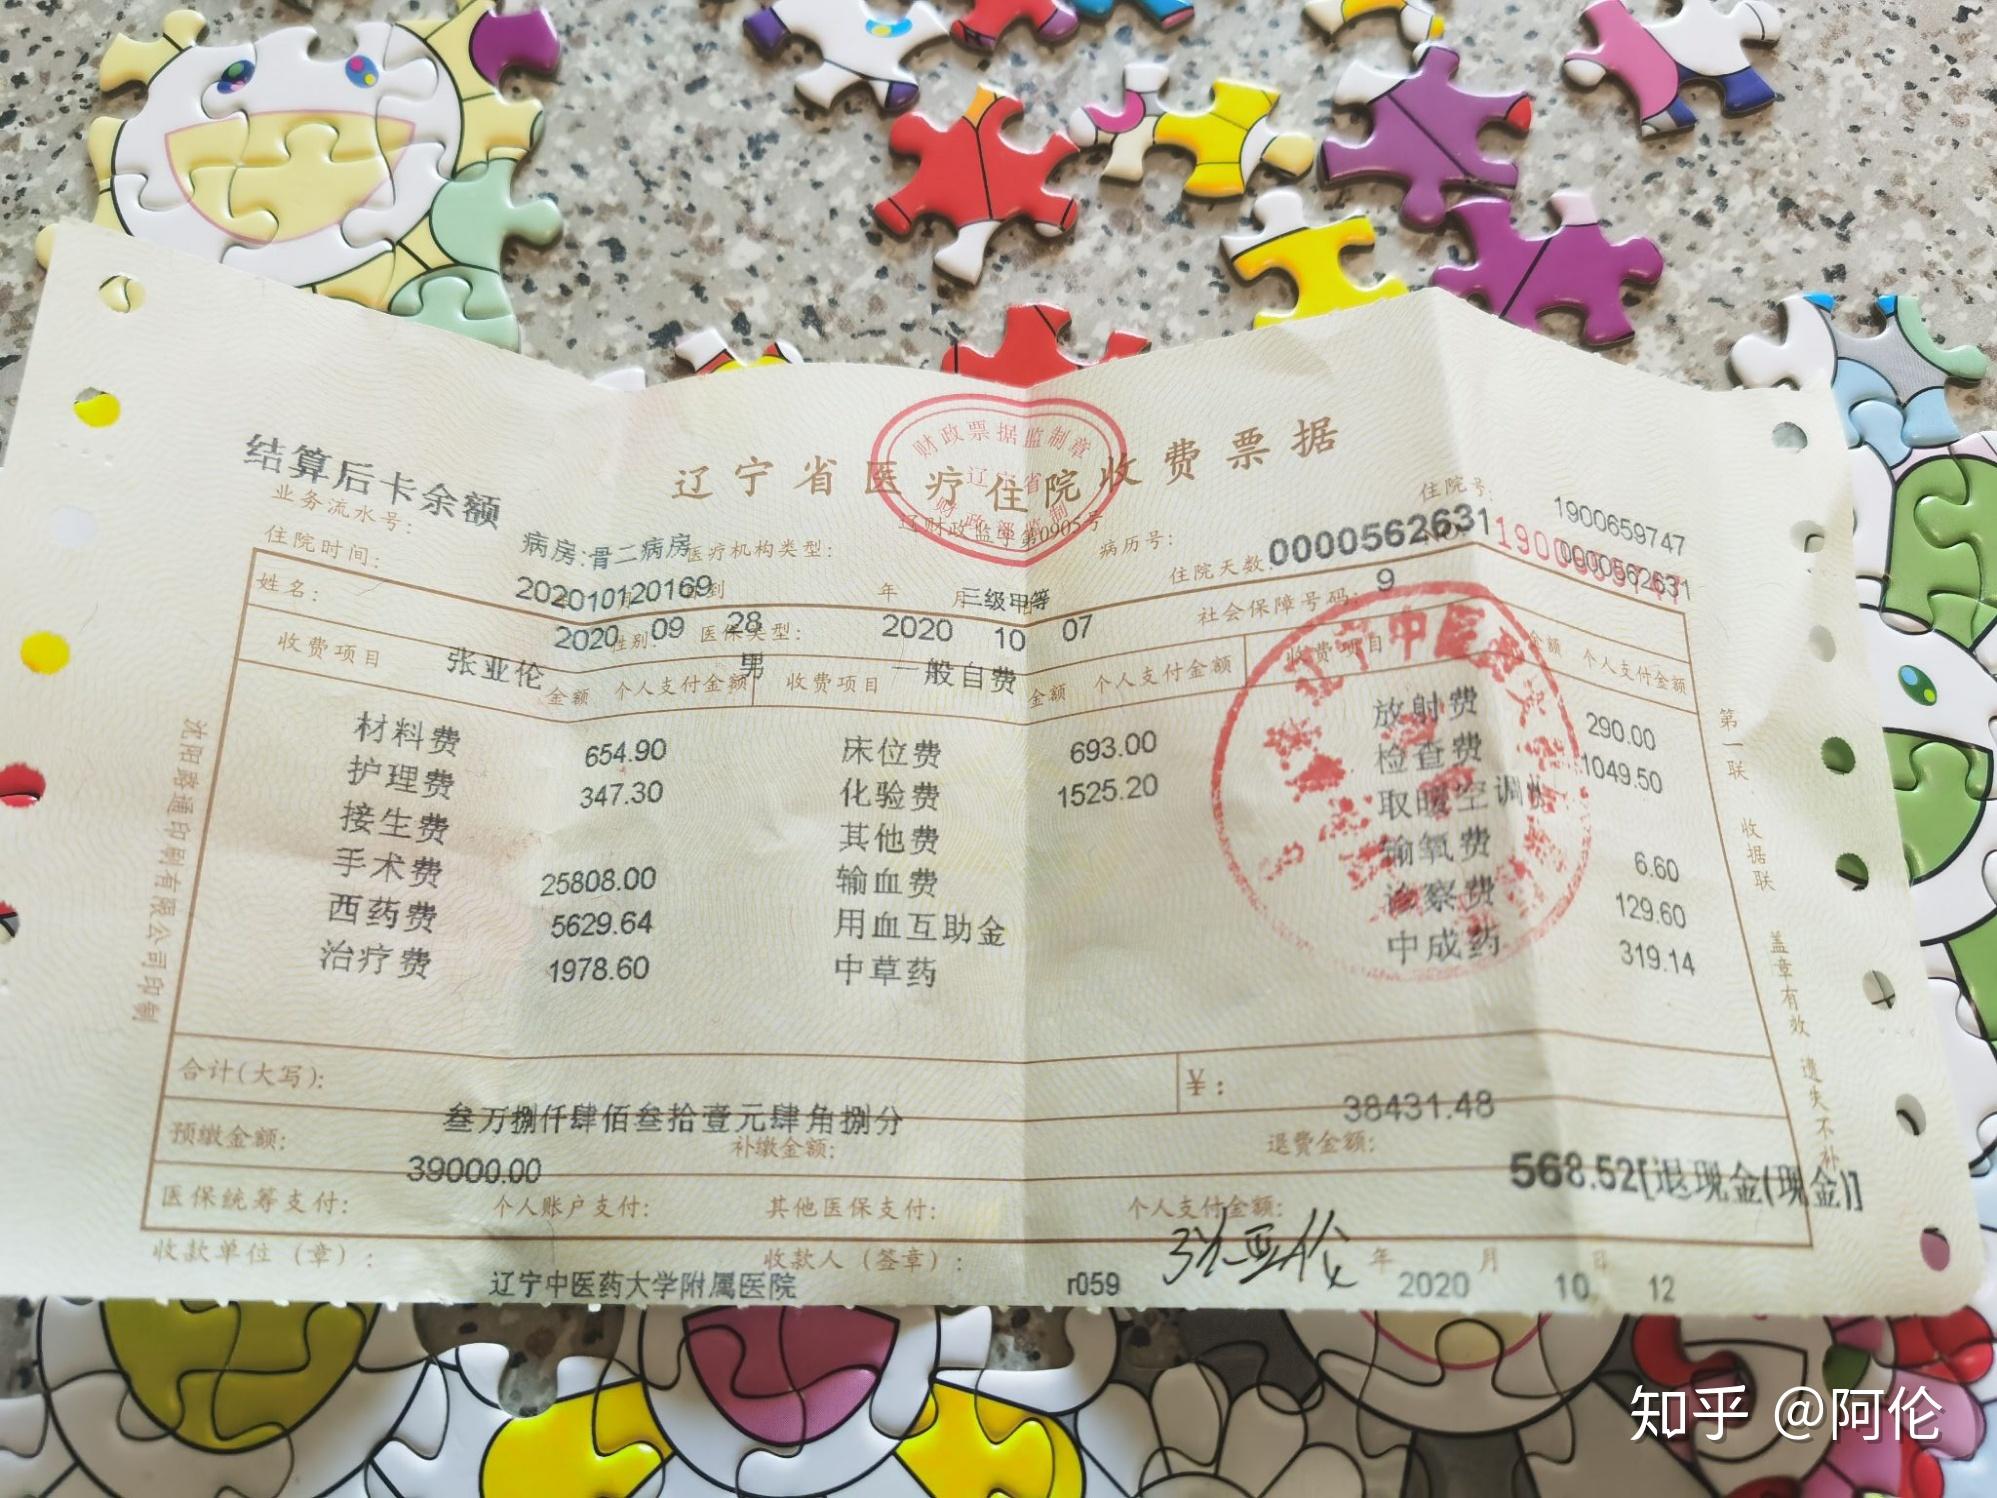 财政票据监制章
辽宁省
辽宁省医疗住院收费票据
辽财政监字第0905号
结算后卡余额
业务流水号:
病房:骨二病房
医疗机构类型:
病历号:
0000562631
住院号:
1900659747
0000562631
住院时间:
20201012
0169
三级甲等
住院天数:
9
姓名:
张亚伦
2020 09 28
性别:
男
医保类型:
一般自费
年 月
2020 10 07
社会保障号码:
收费项目 金额 个人支付金额 收费项目 金额 个人支付金额 收费项目 金额 个人支付金额
材料费 654.90 床位费 693.00 放射费 290.00
护理费 347.30 化验费 1525.20 检查费 1049.50
接生费 其他费 取暖空调费
手术费 25808.00 输血费 输氧费 6.60
西药费 5629.64 用血互助金 诊察费 129.60
治疗费 1978.60 中草药 中成药 319.14
合计(大写): 叁万捌仟肆佰叁拾壹元肆角捌分 ¥: 38431.48
预缴金额: 39000.00 补缴金额: 退费金额: 568.52[退现金(现金)]
医保统筹支付: 个人账户支付: 其他医保支付: 个人支付金额:
收款单位(章): 辽宁中医药大学附属医院 收款人(签章): r059 张亚伦 年 月 日
2020 10 12
第一联 收据联 盖章有效 遗失不补
知乎 @阿伦